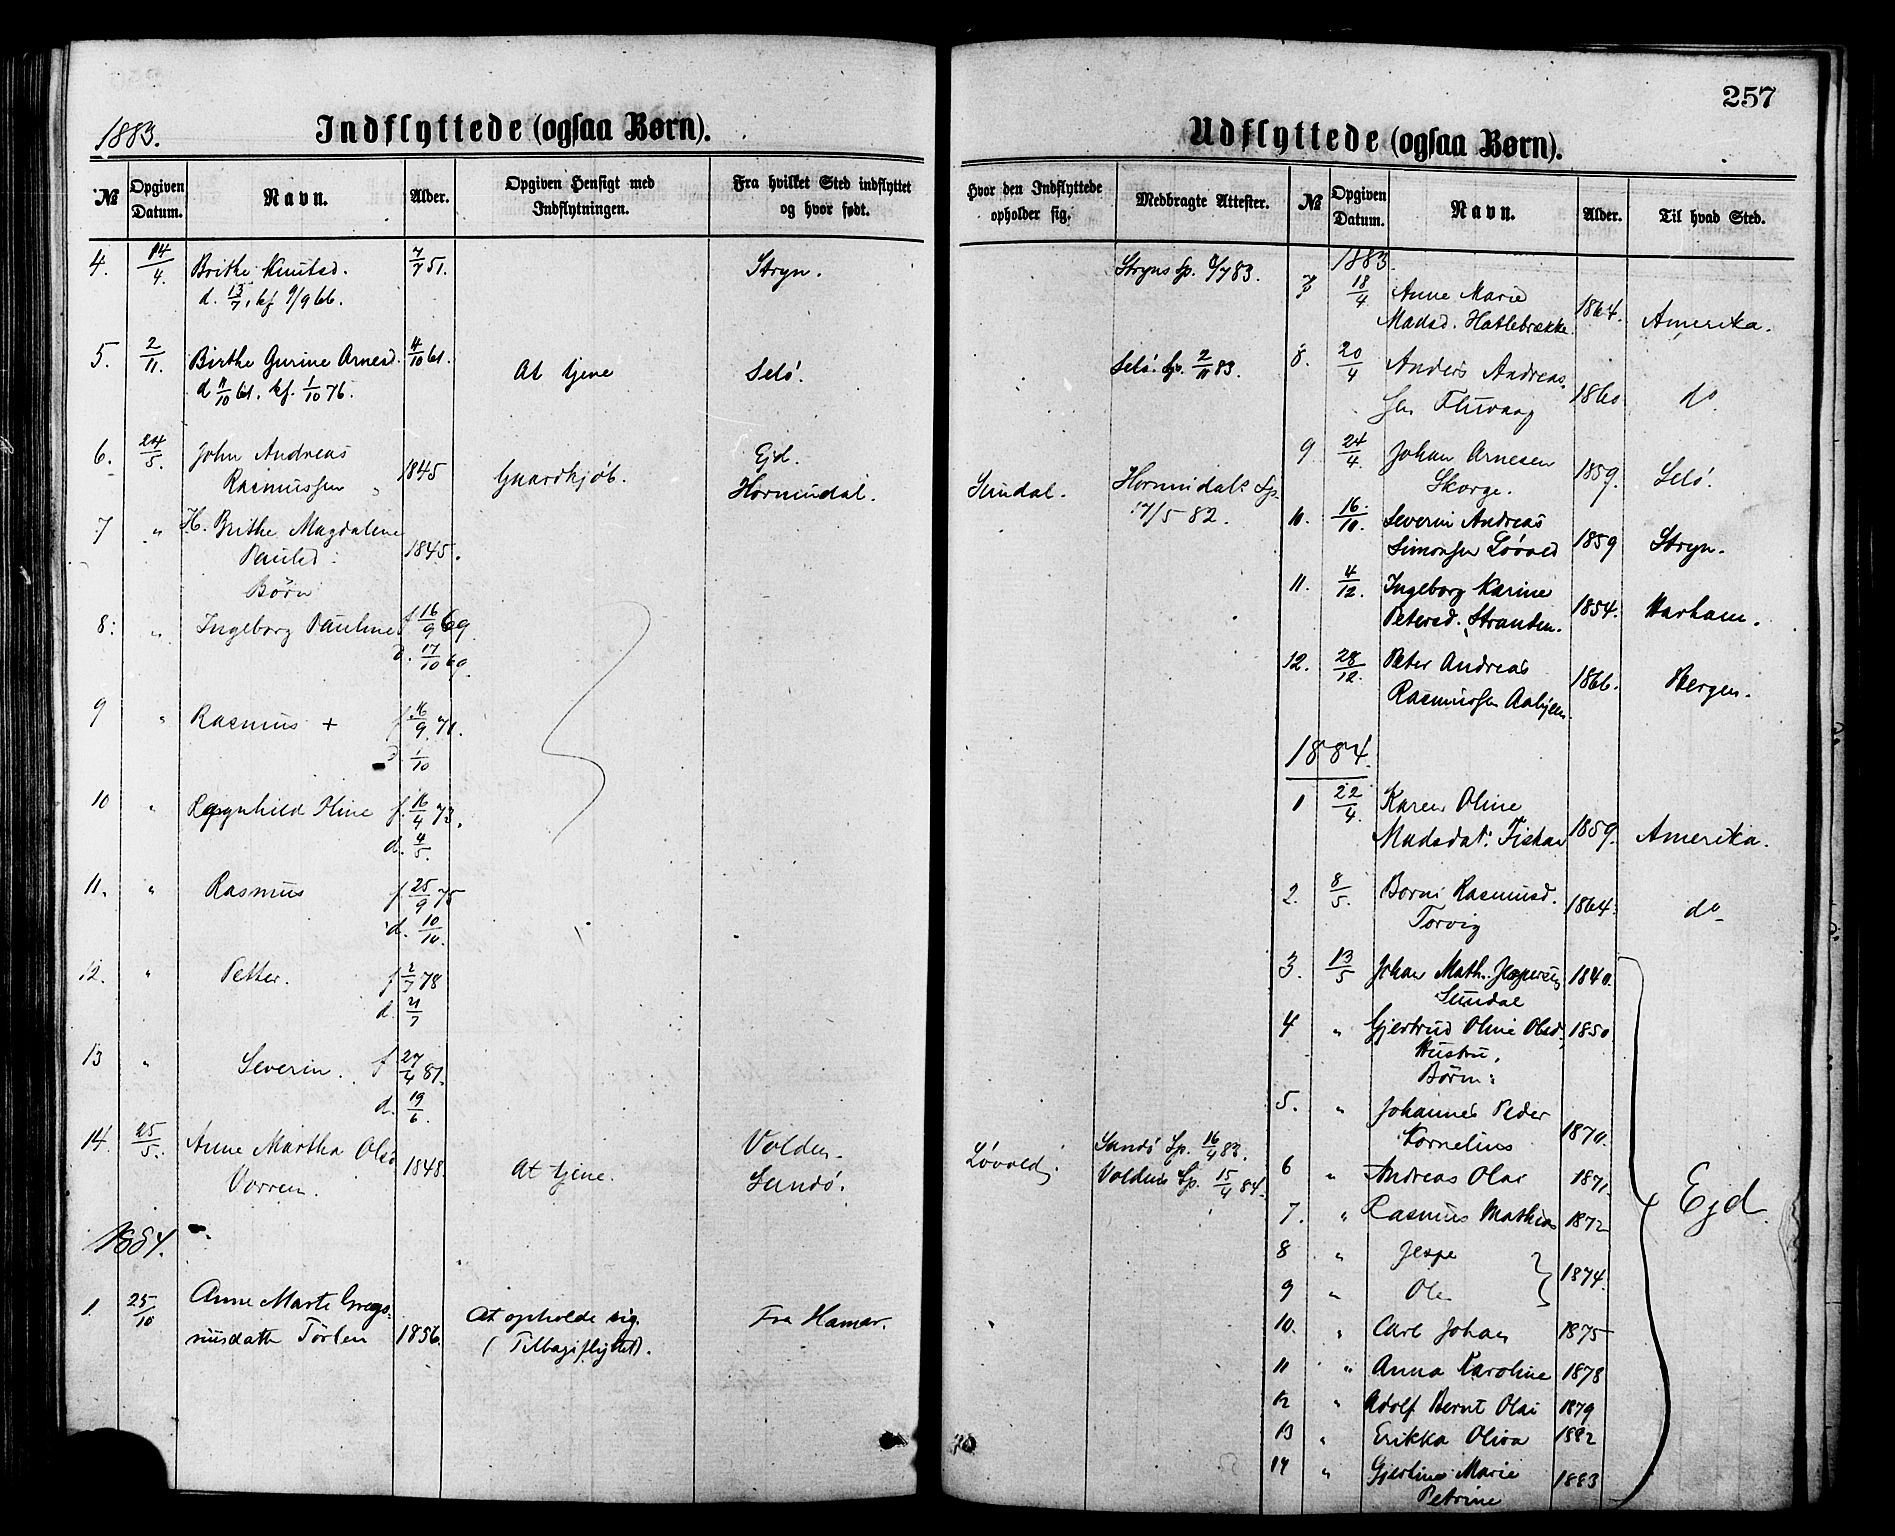 257
1883.
Indflyttede (ogsaa Børn).
№ Opgiven Datum. Navn. Alder. Opgiven Hensigt med Indflytningen. Fra hvilket Sted indflyttet og hvor født.
Hvor den Indflyttede opholder sig. Medbragte Attester.
4. 14/4. Brithe Knutsd. 7/7 51. Stryn. Stryns Sp. 83.
d. 13/7, kf 9/9 66.
5. 2/11. Birthe Gurine Arnesd. 4/10 61. At tjene Selö. Selö Sp. 2/11 83.
d 11/10 61. kf. 1/10 76.
6. 24/5. John Andreas Ejd.
Rasmussen 1845 Gaardkjøb. Hornindal. Sundal. Hornindals Sp.
17/5 82.
7 " H. Brithe Magdalene
Paulsd. 1845.
Børn
8. " Ingeborg Pauline f 16/9 69
d. 17/10 69.
9 " Rasmus + f. 16/9 71.
d 1/10
10 " Ragnhild Oline f. 16/4 73.
d. 4/5.
11. " Rasmus f. 25/9 75
d. 10/10.
12. " Petter. f 2/7 78
d. 21/7
13 " Severin. f 27/4 81.
d. 19/6.
14. 25/5. Anne Martha Olsd. Volden. Sandö Sp. 16/4 83.
Vorren. 1848. At tjene. Sandö. Løvold. Voldens Sp. 15/4 84.
1884.
1. 25/10 Anne Marte Grego-
riusdatter 1856. At opholde sig. Fra Hamar.
(Tilbageflyttet).
Udflyttede (ogsaa Børn).
№ Opgiven Datum. Navn. Alder. Til hvad Sted.
1883.
7 18/4 Anne Marie
Madsd. Hatlebrække 1864. Amerika.
8. 20/4 Anders Andreas-
sen 1860 do
9 24/4. Johan Arnesen
Skorge. 1859. Selö.
10. 16/10. Severin Andreas
Simonsen Løvold 1859 Stryn.
11. 4/12. Ingeborg Karine
Petersd. Stranden. 1854. Harham.
12. 28/12. Peter Andreas
Rasmussen 1866. Bergen.
1884.
1 22/4. Karen Oline
Madsdat. 1859. Amerika.
2. 8/5. Rasmusd.
Torvig 1864. do
3. 13/5 Johan Math. Jespersen 1840.
Sundal
4 " Gjertrud Oline Olsd. 1850.
Hustru.
Børn:
5. " Johannes Peder
Kornelius 1870.
6 " Andreas Olai 1871. Ejd.
7. " Rasmus Mathias 1872
8 " Jespe
9 " Ole } 1874.
10. " Carl Johan 1875
11 " Anna Karoline 1878
12 " Adolf Bernt Olai 1879
13 " Erikka Oliva 1882
14 " Gjertine Marie 1883
Petrine